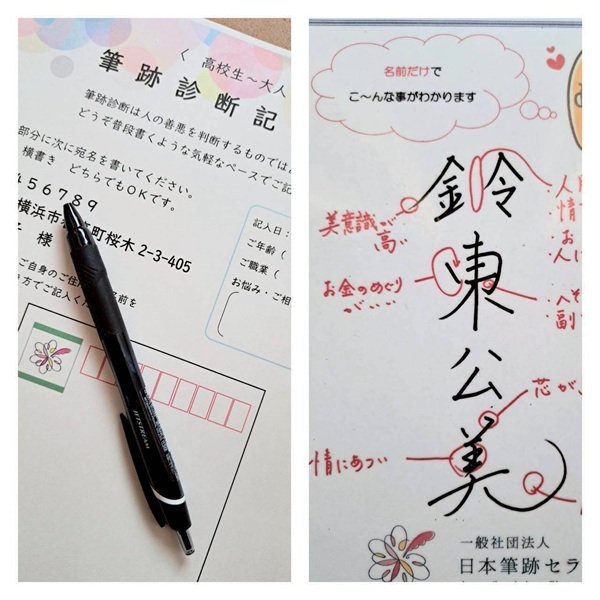 く 高校生~大人
筆跡診断記
筆跡診断は人の善悪を判断するものでは
どうぞ普段書くような気軽なペースでご記
部分に次に宛名を書いてください。
横書き どちらでもOKです。
456789
横浜市
町桜木2-3-405
子 様
ご自身のご住
方でご記入くだ
名前を
記入日:
ご年齢(
ご職業(
お悩み・ご相
JETSTREAM
名前だけで
こ~んな事がわかります
鈴
東
公
美
美意識が
高い
お金のめぐり
がいい
情にあつい
人
情
お
人に
へそ
副
芯が
一般社団法人
日本筆跡セラ